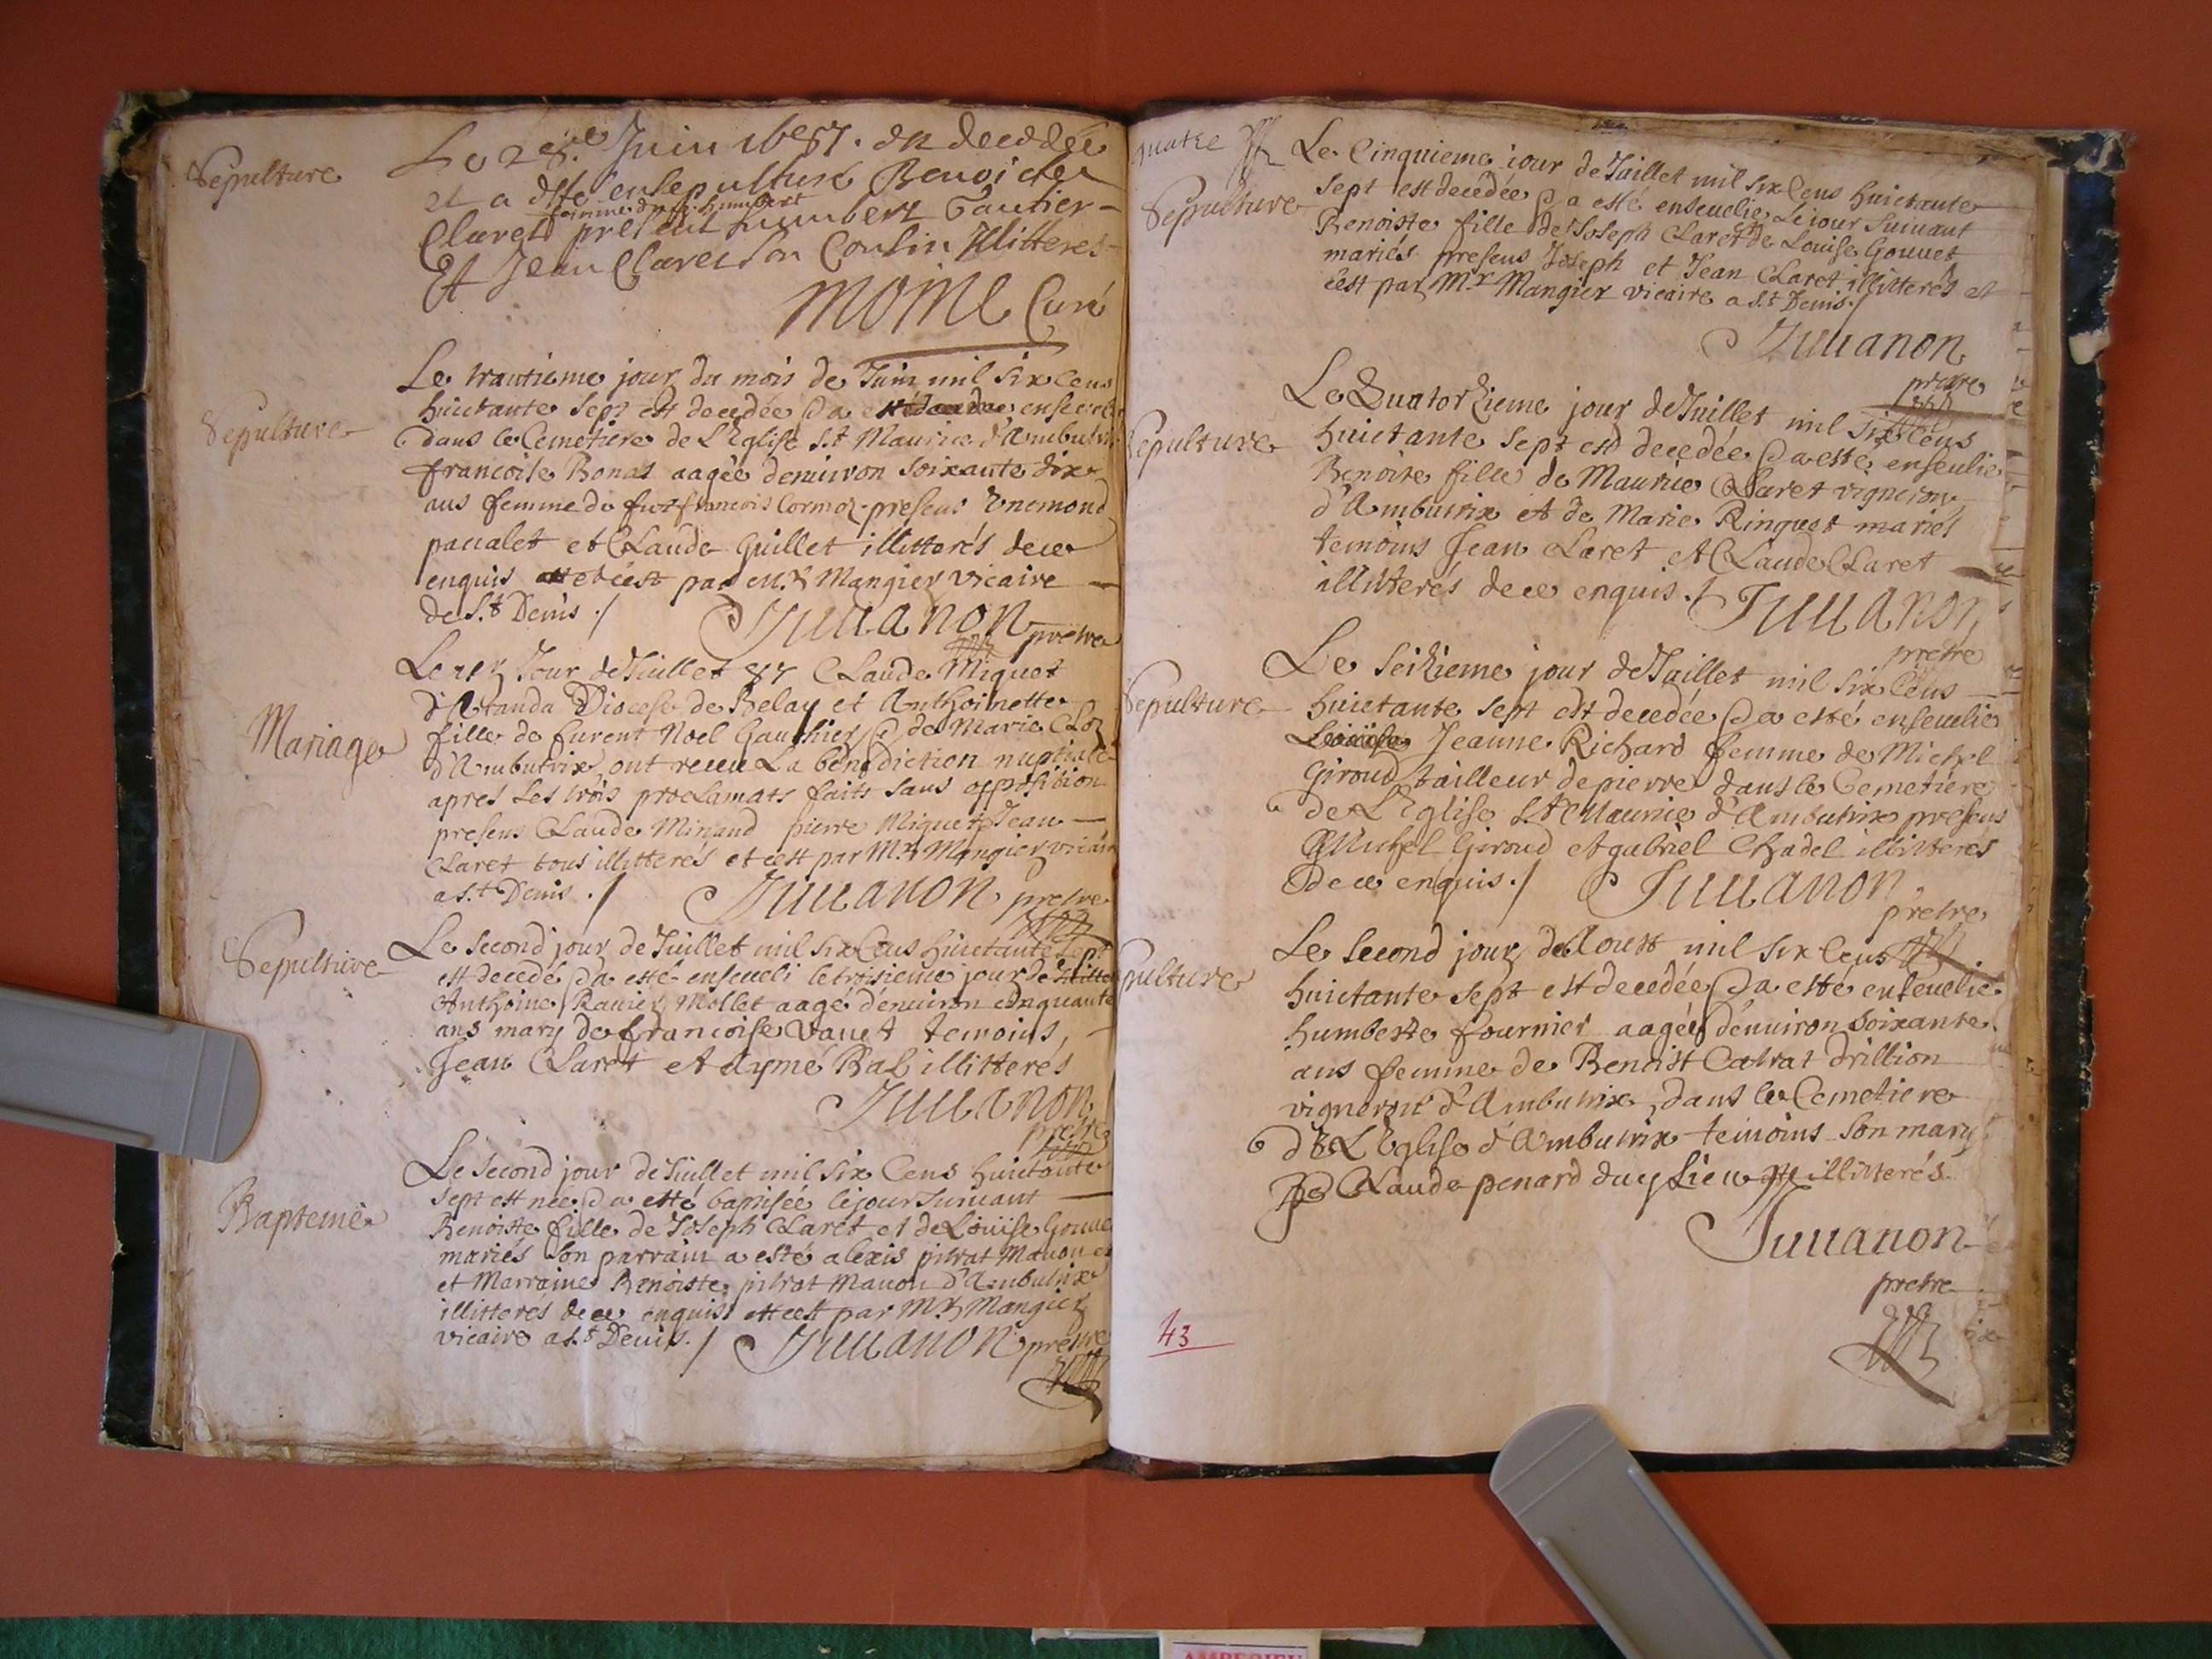 Sepulture
Le 28.e Juin 1687. est decedée
et a esté ensepulturé Benoiste
femme dudt. humbert
Claret present humbert Gautier
Et Jean Claret son Cousin Illitteres
MOINE Curé
Sepulture
Le trantieme jour du mois de Juin mil six Cens
huictante sept est decedée & a esté ensevelie
dans le Cemetiere de L'Eglise s.t Maurice d'Ambutrix
francoise Bonas aagée denuiron soixante dix
ans femme de fut francois Cormoz presens Enemond
paualet et Claude Guillet illitterés de ce
enquis et c'est par en. Mr Mangier vicaire
de s.t Denis ./ Juuanon pretre
Mariage
Le Jour de Juillet 87 Claude Miquet
d' tanda Diocese de Belay et Anthoinette
fille de furent Noel Gauthier & de Marie Cloz
d'Ambutrix ont receu La benediction nuptiale
apres Les trois proclamats faits sans opposition
presens Claude Minand pierre Miquet Jean
Claret tous illitterés et cest par Mr Mangier vicaire
a s.t Denis ./ Juuanon pretre
Sepulture
Le second jour de Juillet mil six Cens huictante sept
est decedé & a esté enseueli le troisieme jour de Juillet
Anthoine Rauier Mollet aagé denuiron cinquante
ans mary de francoise Vauet temoins,
Jean Claret et Aymé Bal illitterés
Juuanon
pretre
Bapteme
Le second jour de Juillet mil six Cens huictante
sept est née & a esté baptisée le jour suiuant
Benoiste fille de Joseph Claret et de Louise Gouuet
mariés son parrain a esté alexis pitrat Manon
et Marraine Benoiste pitrat Manon d'Ambutrix
illitterés de ce enquis et cest par Mr Mangier
vicaire a s.t Denis ./ Juuanon pretre
quatre
Sepulture
Le Cinquieme jour de Juillet mil six Cens huictante
sept est decedée & a esté enseuelie Le jour suiuant
Benoiste fille de Joseph Claret et de Louise Gouuet
mariés presens Joseph et Jean Claret illitterés et
cest par Mr Mangier vicaire a s.t Denis ./
Juuanon
pretre
Sepulture
Le Quatorzieme jour de Juillet mil six Cens
huictante sept est decedée & a esté enseulie
Benoite fille de Maurice Claret vigneron
d'Ambutrix et de Marie Ringuet mariés
temoins Jean Claret et Claude Claret
illitterés de ce enquis ./ Juuanon
pretre
Sepulture
Le seizieme jour de Juillet mil six Cens
huictante sept est decedée & a esté enseuelie
Louise Jeanne Richard femme de Michel
Giroud tailleur de pierre dans le Cemetiere
de L'Eglise s.t Maurice d'Ambutrix presens
Michel Giroud et gabriel Chadel illitterés
de ce enquis ./ Juuanon
pretre
pulture
Le second jour d'Aoust mil six Cens
huictante sept est decedée & a esté enseuelie
humberte fournier aagée denuiron soixante
ans femme de Benoist Catrat drillion
vigneron d'Ambutrix, dans le Cemetiere
de L'Eglise d'Ambutrix temoins son mary
& Claude penard duy Lieu illitterés.
Juuanon
pretre
43